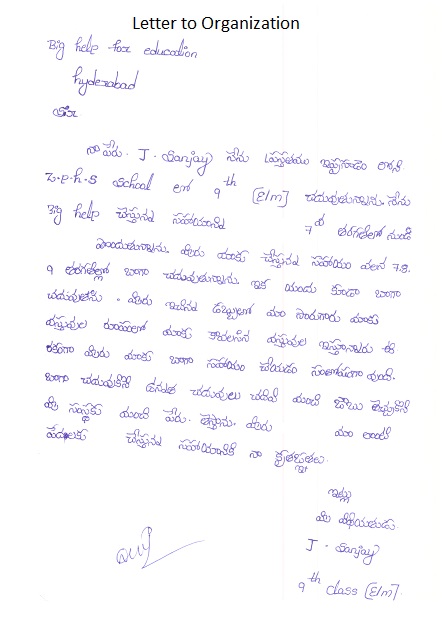 Letter to Organization
Big help for education
hyderabad
సార్
నా పేరు. J. Sanjay నేను ప్రస్తుతము ఇప్పగూడెం లోని
Z.P.h.s School లో 9th [E/m] చదువుతున్నాను. నేను
Big help చేస్తున్న సహాయాన్ని 7వ తరగతిలో నుండి
పొందుతున్నాను. మీరు మాకు చేస్తున్న సహాయం వలన 7.8.
9 తరగతిల్లో బాగా చదువుతున్నాను. ఇక ముందు కూడా బాగా
చదువుతాను. మీరు ఇచ్చిన డబ్బులతో మా సారుగారు మాకు
వస్తువుల రూపంలో మాకు కావలసిన వస్తువులు ఇస్తున్నారు ఈ
రకంగా మీరు మాకు బాగా సహాయం చేయడం సంతోషంగా వుంది.
బాగా చదువుకొని ఉన్నత చదువులు చదివి మంచి జాబు తెచ్చుకొని
మీ సంస్థకు మంచి పేరు. తెస్తాను. మీరు మా లాంటి
పేదలకు చేస్తున్న సహాయానికి నా కృతజ్ఞతలు.
ఇట్లు
మీ విధేయుడు
J. Sanjay
9th class [E/m].